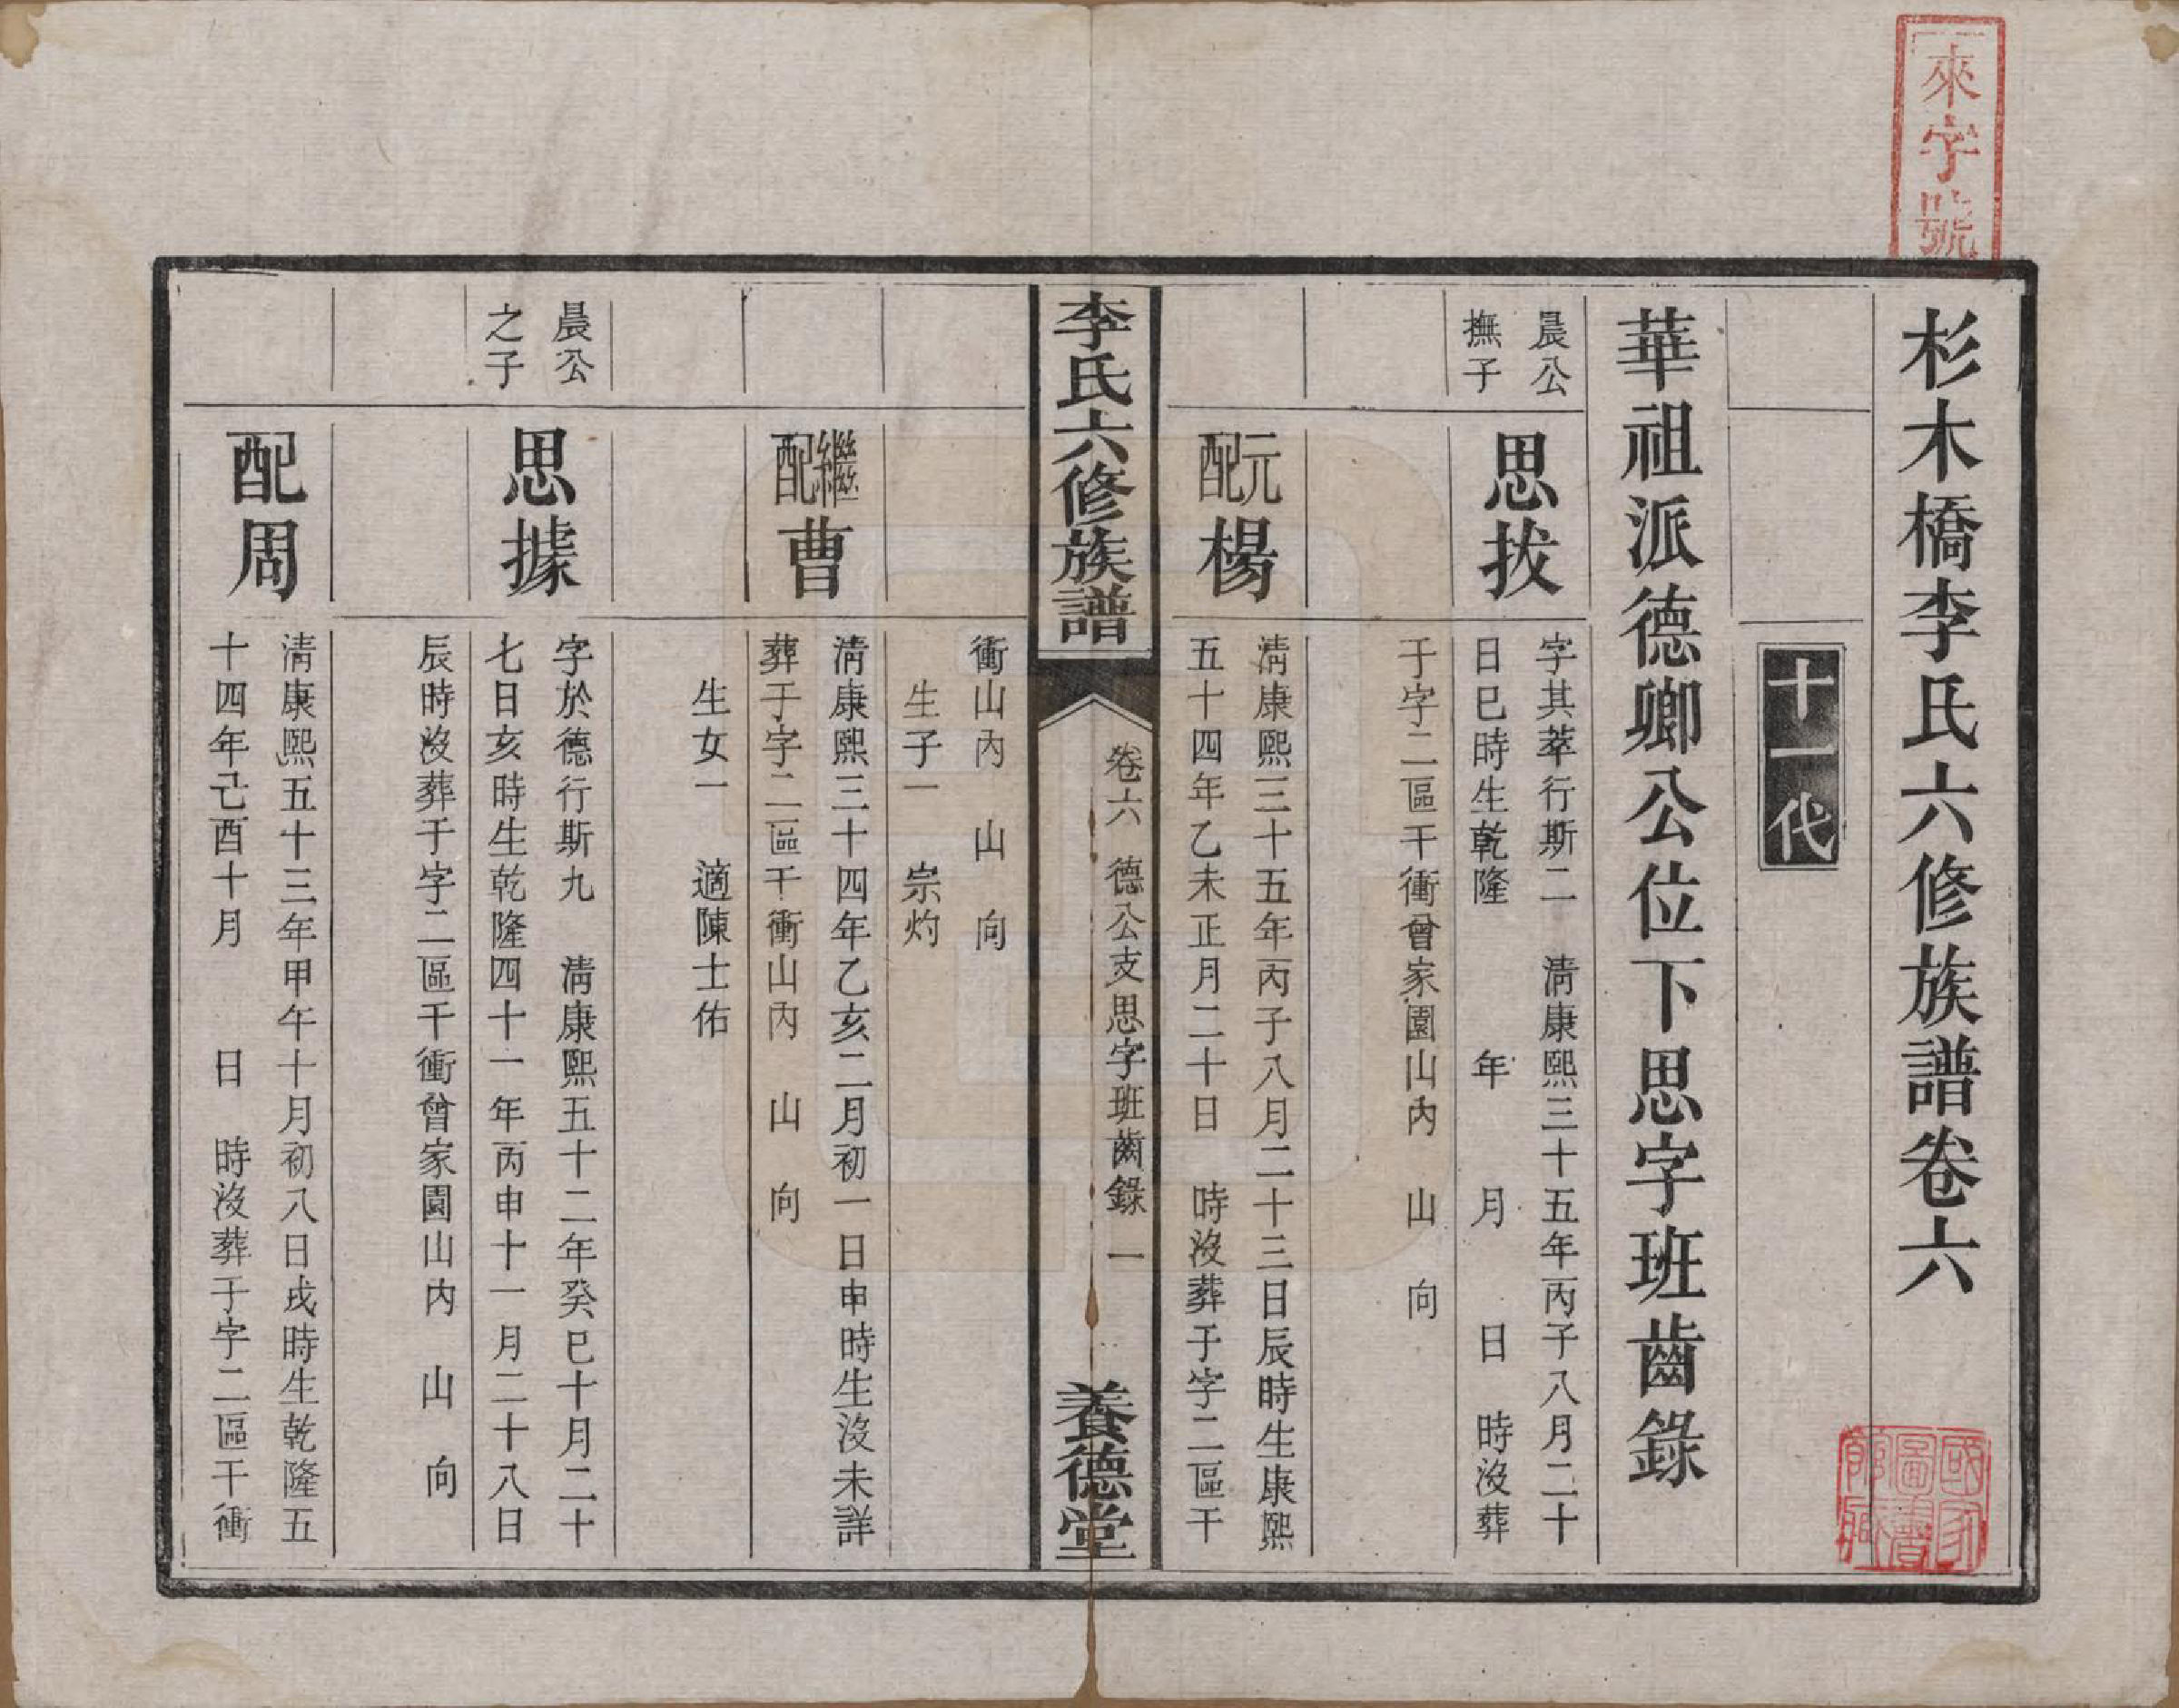 來字號
杉木橋李氏六修族譜卷六
十一代
華祖派德卿公位下思字班齒錄
晨公
撫子
思拔
字其萃行斯二　清康熙三十五年丙子八月二十
日巳時生乾隆　年　月　日　時沒葬
于字二區干衝曾家園山內　山　向
元配楊
清康熙三十五年丙子八月二十三日辰時生康熙
五十四年乙未正月二十日　時沒葬于字二區干
李氏六修族譜
卷六　德公支思字班齒錄　一
養德堂
衝山內　山　向
生子一　宗灼
繼配曹
清康熙三十四年乙亥二月初一日申時生沒未詳
葬于字二區干衝山內　山　向
生女一　適陳士佑
晨公
之子
思據
字於德行斯九　清康熙五十二年癸巳十月二十
七日亥時生乾隆四十一年丙申十一月二十八日
辰時沒葬于字二區干衝曾家園山內　山　向
配周
清康熙五十三年甲午十月初八日戌時生乾隆五
十四年己酉十月　日　時沒葬于字二區干衝
國家圖書館藏